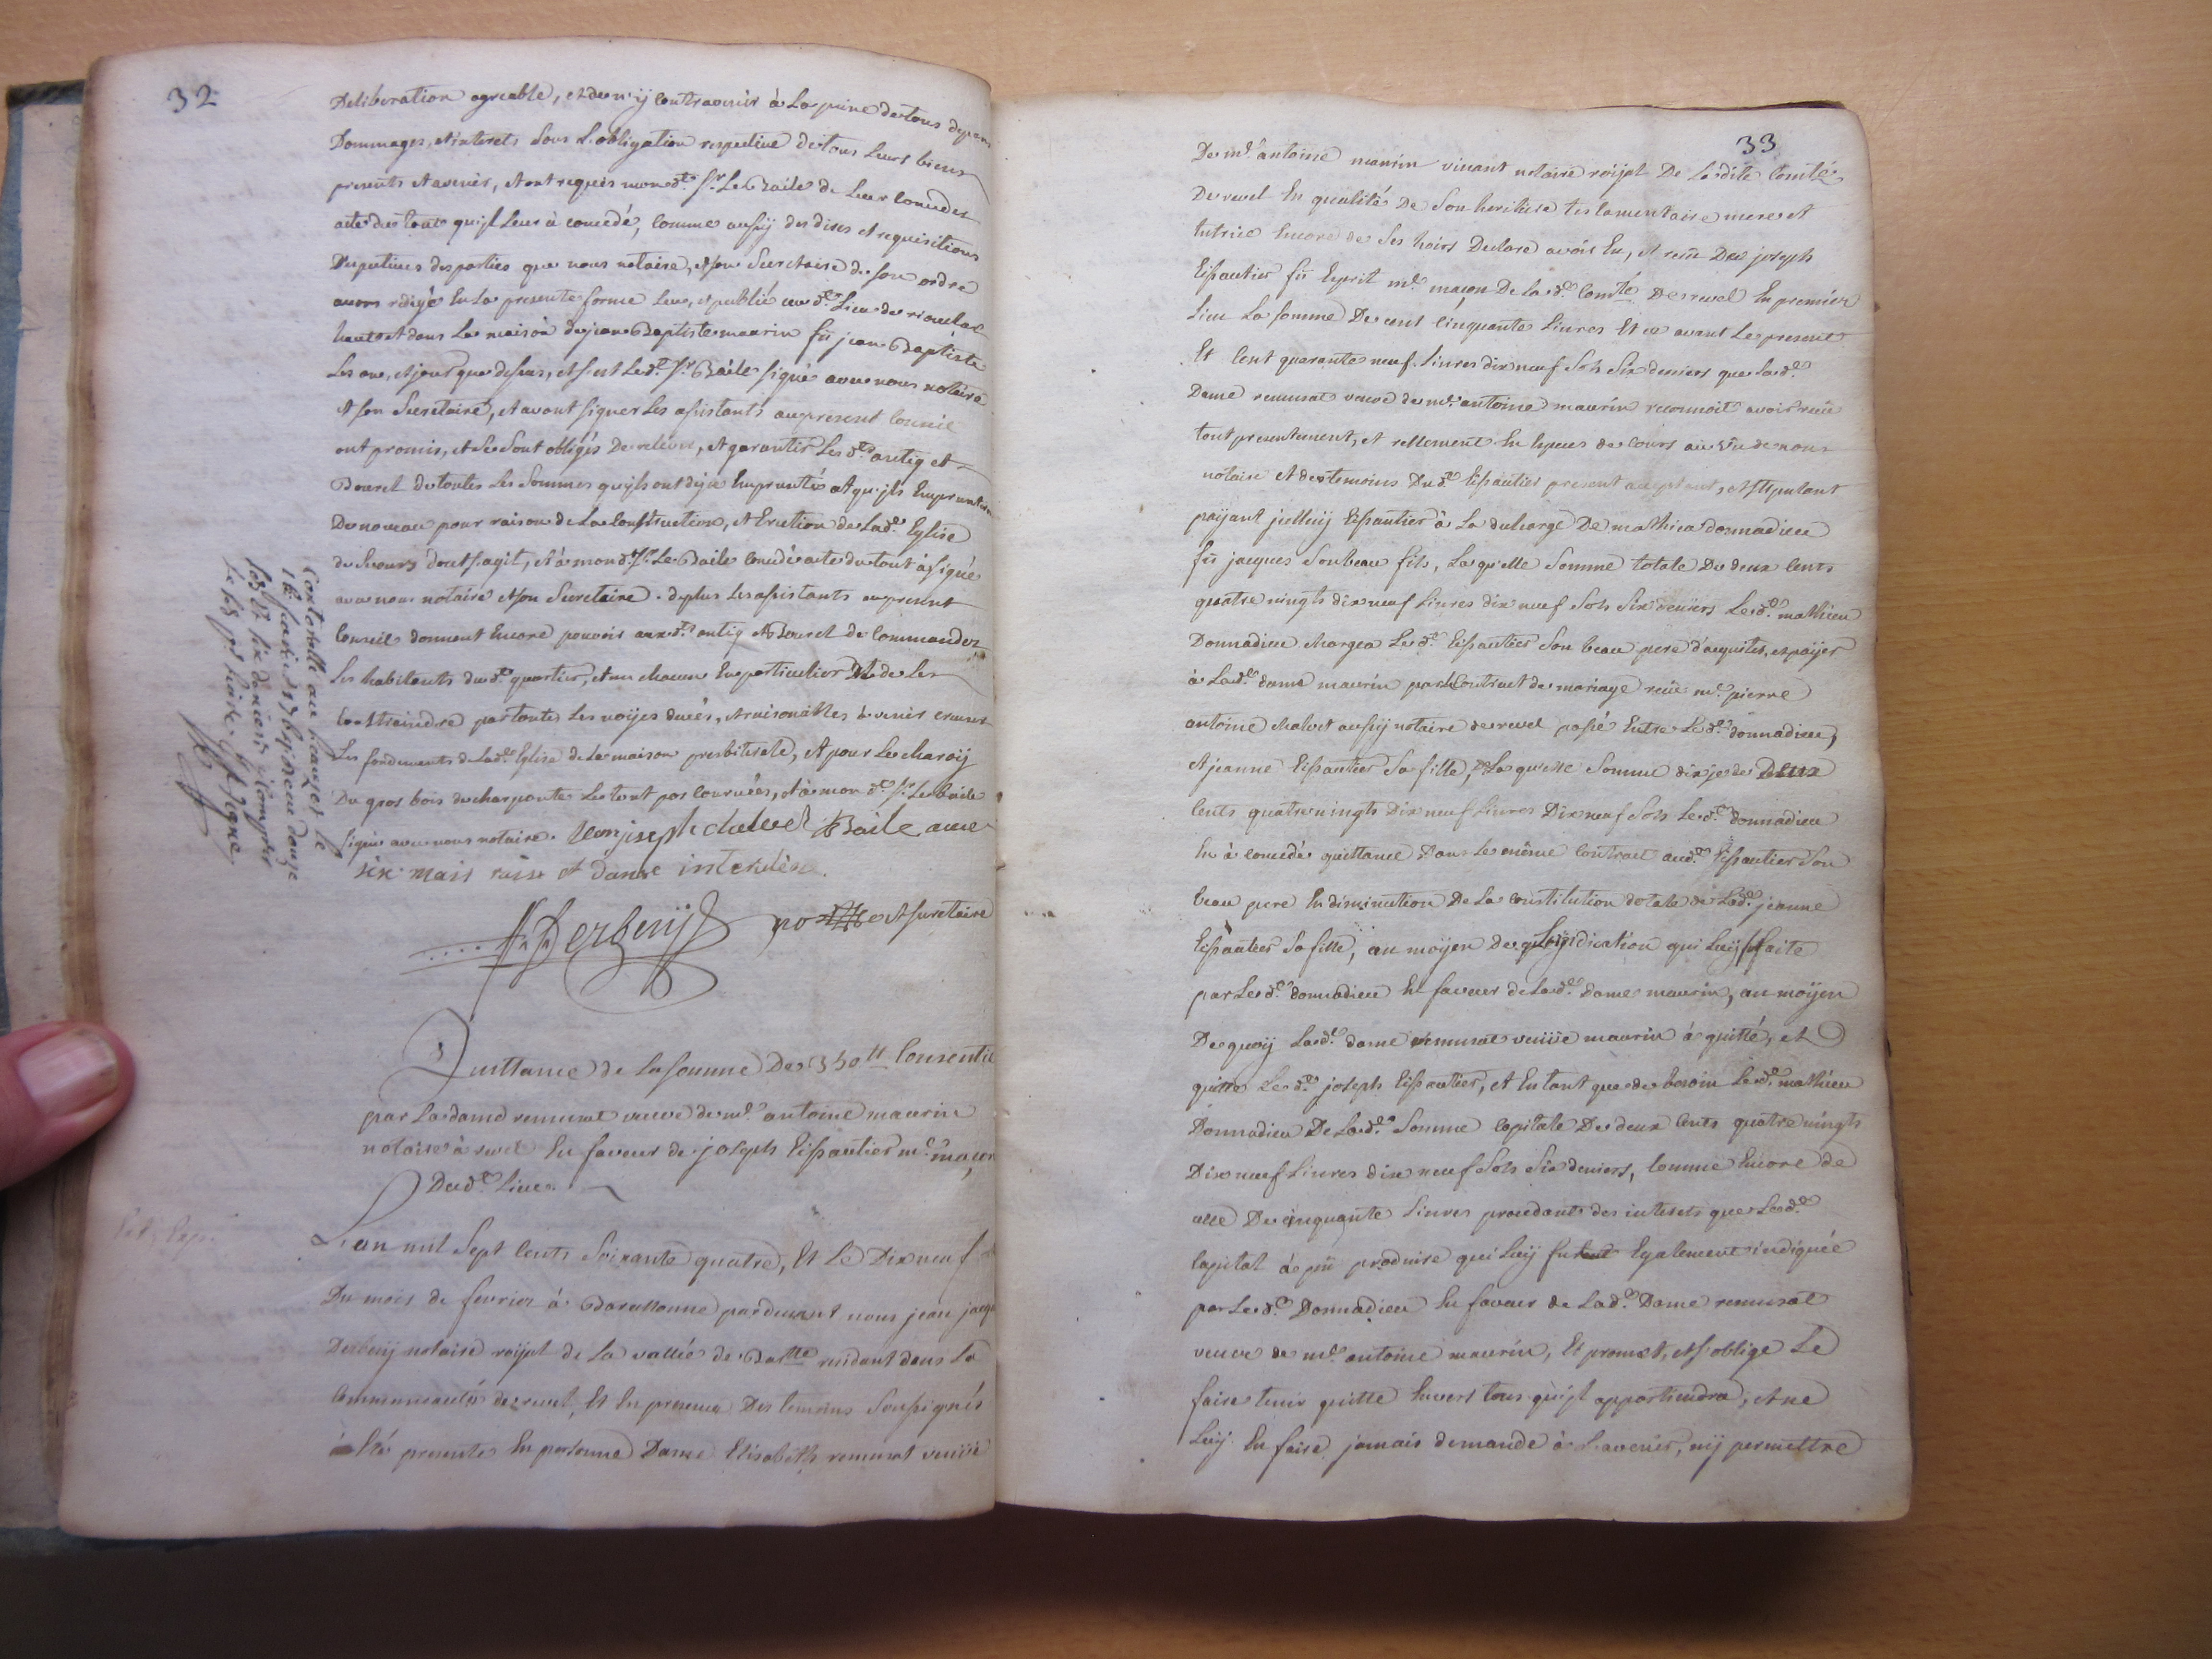 32
Deliberation agreable, et de n'ij contravenir à La peine de tous depens
Dommages, et interets sous L'obligation respective de tous Leurs biens
presents et avenir, et ont requis mond.t Sr. Le Baile de Leur conceder
acte du tout qu'jl Leur à concedé, comme aussij des dires et requisitions
Respectives des parties que nous notaire, et son Secretaire de son ordre
avons redigé En La presente forme Leue, et publié au d.t Lieu de
haut et dans La maison de jean Baptiste maurin fû jean Baptiste
Les an, et jour que dessus, et s'est Led.t Sr. Baile signé avec nous notaire
et son Secretaire, et avant signer Les assistants au present Conseil
ont promis, et Se Sont obligés De relever, et garantir Les d.ts antiq et
Bourel de toutes Les Sommes qu'jls ont deja Emprunté et qu'jls Emprunteront
De nouveau pour raison de La Construction, et Erection de Lad.e Eglise
de Secours dont s'agit, et à mond.t Sr. Le Baile concedé acte du tout et signé
avec nous notaire et son Secretaire. de plus Les assistants au present
Conseil donnent Encore pouvoir aux d.ts antiq et Bourel de Commander
Les habitants dud.t quartier, et un chacun En particulier et de Les
Constraindre par toutes Les voijes dues, et raisonables à venir creuser
Les fondements de Lad.e Eglise de La maison presbiterale, et pour Le charoij
Du gros bois de charpante Le tout par courvées, et à mon d.t Sr. Le baile
signé avec nous notaire. jean joseph chalvet Baile avec
six mais
J. J. Derbenij no.re et Secretaire
Controllé au
Quittance de La Somme De 350 tt Consentie
par La dame remusat veuve de me. antoine maurin
notaire à revel En faveur de joseph Eissautier me. maçon
Dud.t Lieu.
L'an mil Sept Cents Soixante quatre, Et Le Dix neuf
Du mois de fevrier à Barcellonne pardevant nous jean jacques
Derbenij notaire roijal de La vallée de Bar.lle residant dans La
Communauté de revel, Et En presence Des temoins Soussignés
à Eté presente En personne Dame Elisabeth remusat veuve
33
De me. antoine maurin vivant notaire roijal De Ladite Comté
De revel En qualité De Son heritiere testamentaire mere et
tutrice Encore de Ses hoirs Declare avoir Eu, et receu De joseph
Eissautier fû Esprit me. maçon De lad.e Comté De revel En premier
Lieu La Somme De cent Cinquante Livres Et ce avant Le present
Et Cent quarante neuf Livres dix neuf Sols Six deniers que Lad.e
Dame remusat veuve de me. antoine maurin reconnoit avoir receu
tout presentement, et réellement En Especes de Cours au vû de nous
notaire et des temoins Dud.t Eissautier present acceptant, et stipulant
paijant jcelluij Eissautier à La decharge De mathieu donnadieu
fû jacques Son beau fils, Laquelle Somme totale De deux Cents
quatre vingts dix neuf Livres dix neuf Sols Six deniers Led.t mathieu
Donnadieu chargea Led.t Eissautier Son beau pere d'acquiter, et paijer
à Lad.e dame maurin par Contract de mariage receu me. pierre
antoine chalvet aussij notaire de revel passé Entre Led.t donnadieu,
et jeanne Eissautier Sa fille, De Laquelle Somme dis je de Deux
Cents quatre vingts Dix neuf Livres Dix neuf Sols Led.t donnadieu
En à concedé quittance Dans Le même Contract aud.t Eissautier Son
beau pere En diminution De La Constitution dotale de Lad.e jeanne
Eissautier Sa fille, au moijen de L'indication qui Luij fut faite
par Led.t donnadieu En faveur de Lad.e dame maurin, au moijen
De quoij Lad.e dame remusat veuve maurin à quitté, et
quitte Led.t joseph Eissautier, et En tant que de besoin Led.t mathieu
Donnadieu De Lad.e Somme Capitale De deux Cents quatre vingts
Dix neuf Livres dix neuf Sols Six deniers, Comme Encore de
celle De Cinquante Livres procedante des interets que Led.t
Capital à pû produire qui Luij furent Egalement indiquée
par Led.t Donnadieu En faveur de Lad.e Dame remusat
veuve de me. antoine maurin, Et promet, et s'oblige Le
faire tenir quitte Envers tous qu'jl appartiendra, et ne
Luij En faire jamais demande à L'avenir, nij permettre